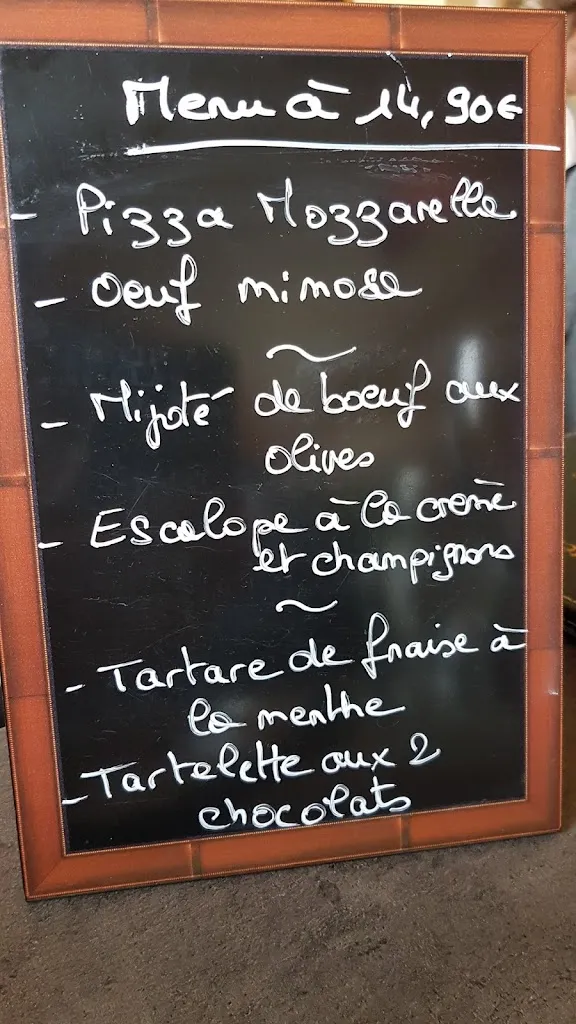 Menu à 14,90€
- Pizza Mozzarella
- Oeuf mimosa
~
- Mijoté de boeuf aux
olives
- Escalope à la crème
et champignons
~
- Tartare de fraise à
la menthe
- Tartelette aux 2
chocolats